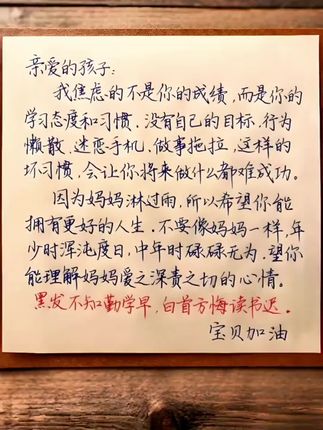 亲爱的孩子:
我焦虑的不是你的成绩,而是你的
学习态度和习惯,没有自己的目标,行为
懒散,迷恋手机,做事拖拉,这样的
坏习惯,会让你将来做什么都难成功。
因为妈妈淋过雨,所以希望你能
拥有更好的人生,不要像妈妈一样,年
少时浑沌度日,中年时碌碌无为,望你
能理解妈妈爱之深责之切的心情。
黑发不知勤学早,白首方悔读书迟。
宝贝加油